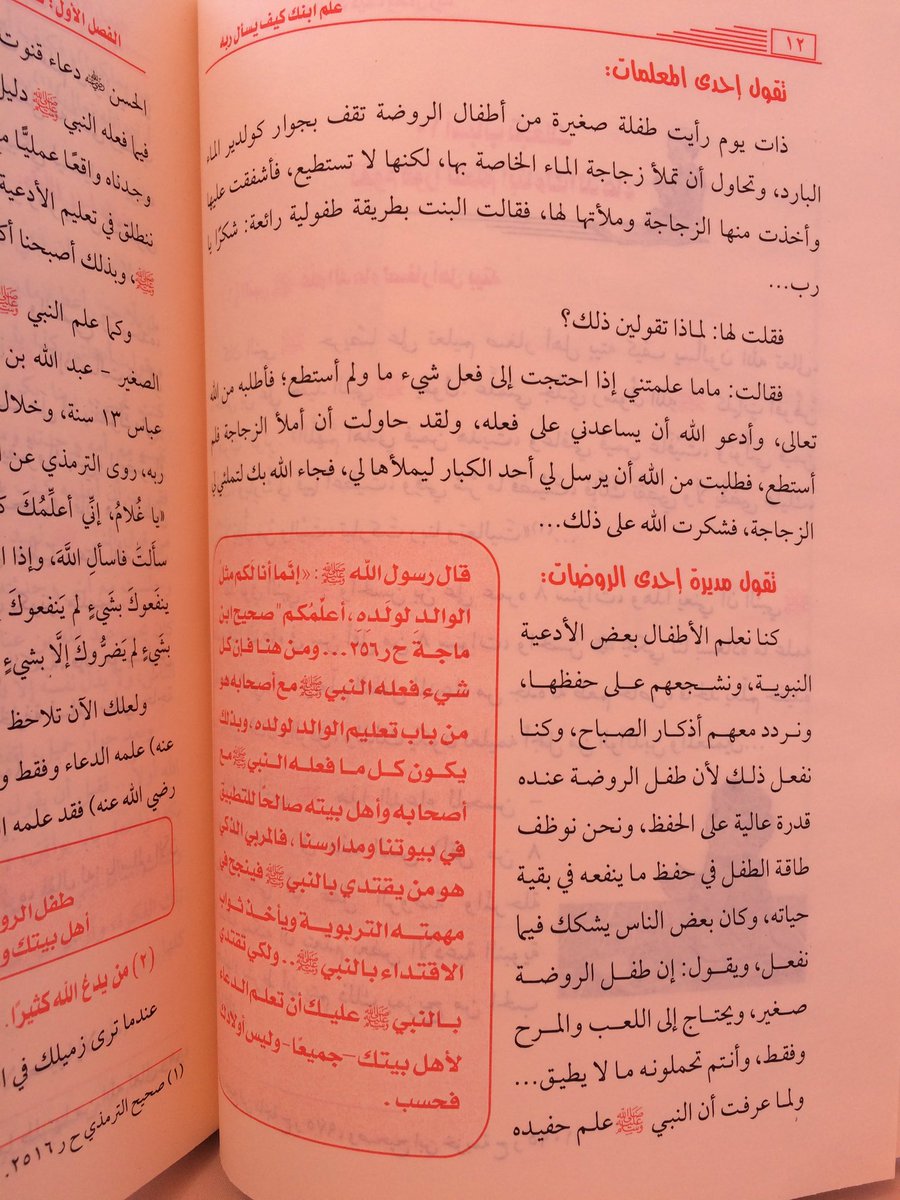 ١٢
علم ابنك كيف يسأل ربه
تقول إحدى المعلمات:
ذات يوم رأيت طفلة صغيرة من أطفال الروضة تقف بجوار كولدير الماء
البارد، وتحاول أن تملأ زجاجة الماء الخاصة بها، لكنها لا تستطيع، فأشفقت عليها
وأخذت منها الزجاجة وملأتها لها، فقالت البنت بطريقة طفولية رائعة: شكرًا يا
رب...
فقلت لها: لماذا تقولين ذلك؟
فقالت: ماما علمتني إذا احتجت إلى فعل شيء ما ولم أستطع؛ فأطلبه من الله
تعالى، وأدعو الله أن يساعدني على فعله، ولقد حاولت أن أملأ الزجاجة فلم
أستطع، فطلبت من الله أن يرسل لي أحد الكبار ليملأها لي، فجاء الله بك لتملئي لي
الزجاجة، فشكرت الله على ذلك...
تقول مديرة إحدى الروضات:
كنا نعلم الأطفال بعض الأدعية
النبوية، ونشجعهم على حفظها،
ونردد معهم أذكار الصباح، وكنا
نفعل ذلك لأن طفل الروضة عنده
قدرة عالية على الحفظ، ونحن نوظف
طاقة الطفل في حفظ ما ينفعه في بقية
حياته، وكان بعض الناس يشكك فيما
نفعل، ويقول: إن طفل الروضة
صغير، ويحتاج إلى اللعب والمرح
وفقط، وأنتم تحملونه ما لا يطيق...
ولما عرفت أن النبي ﷺ علم حفيده
قال رسول الله ﷺ: «إنما أنا لكم مثل
الوالد لولده، أعلمكم" صحيح ابن
ماجة ح ر ٢٥٦... ومن هنا فإن كل
شيء فعله النبي ﷺ مع أصحابه هو
من باب تعليم الوالد لولده، وبذلك
يكون كل ما فعله النبي ﷺ مع
أصحابه وأهل بيته صالحًا للتطبيق
في بيوتنا ومدارسنا، فالمربي الذكي
هو من يقتدي بالنبي ﷺ فينجح في
مهمته التربوية ويأخذ ثواب
الاقتداء بالنبي ﷺ.. ولكي تقتدي
بالنبي ﷺ عليك أن تعلم الدعاء
لأهل بيتك -جميعًا- وليس أولادك
فحسب.
الفصل الأول:
الحسن ﷺ دعاء قنوت
فيما فعله النبي ﷺ دليل
وجدناه واقعًا عمليًّا
ننطلق في تعليم الأدعية
ﷺ، وبذلك أصبحنا
وكما علم النبي ﷺ
الصغير - عبد الله بن
عباس ١٣ سنة، وخلال
ربه، روى الترمذي عن
«يا غُلامُ، إنِّي أعلِّمُكَ
سألتَ فاسألِ اللَّهَ، وإذا
ينفَعوكَ بشَيءٍ لم يَنفعوكَ
بشَيءٍ لم يَضرُّوكَ إلَّا بشيءٍ
ولعلك الآن تلاحظ
عنه) علمه الدعاء وفقط
رضي الله عنه) فقد علمه
طفل
أهل بيتك
(٢) من يدعُ الله كثيرًا.
عندما ترى زميلك في
(١) صحيح الترمذي ح ر ٢٥١٦.